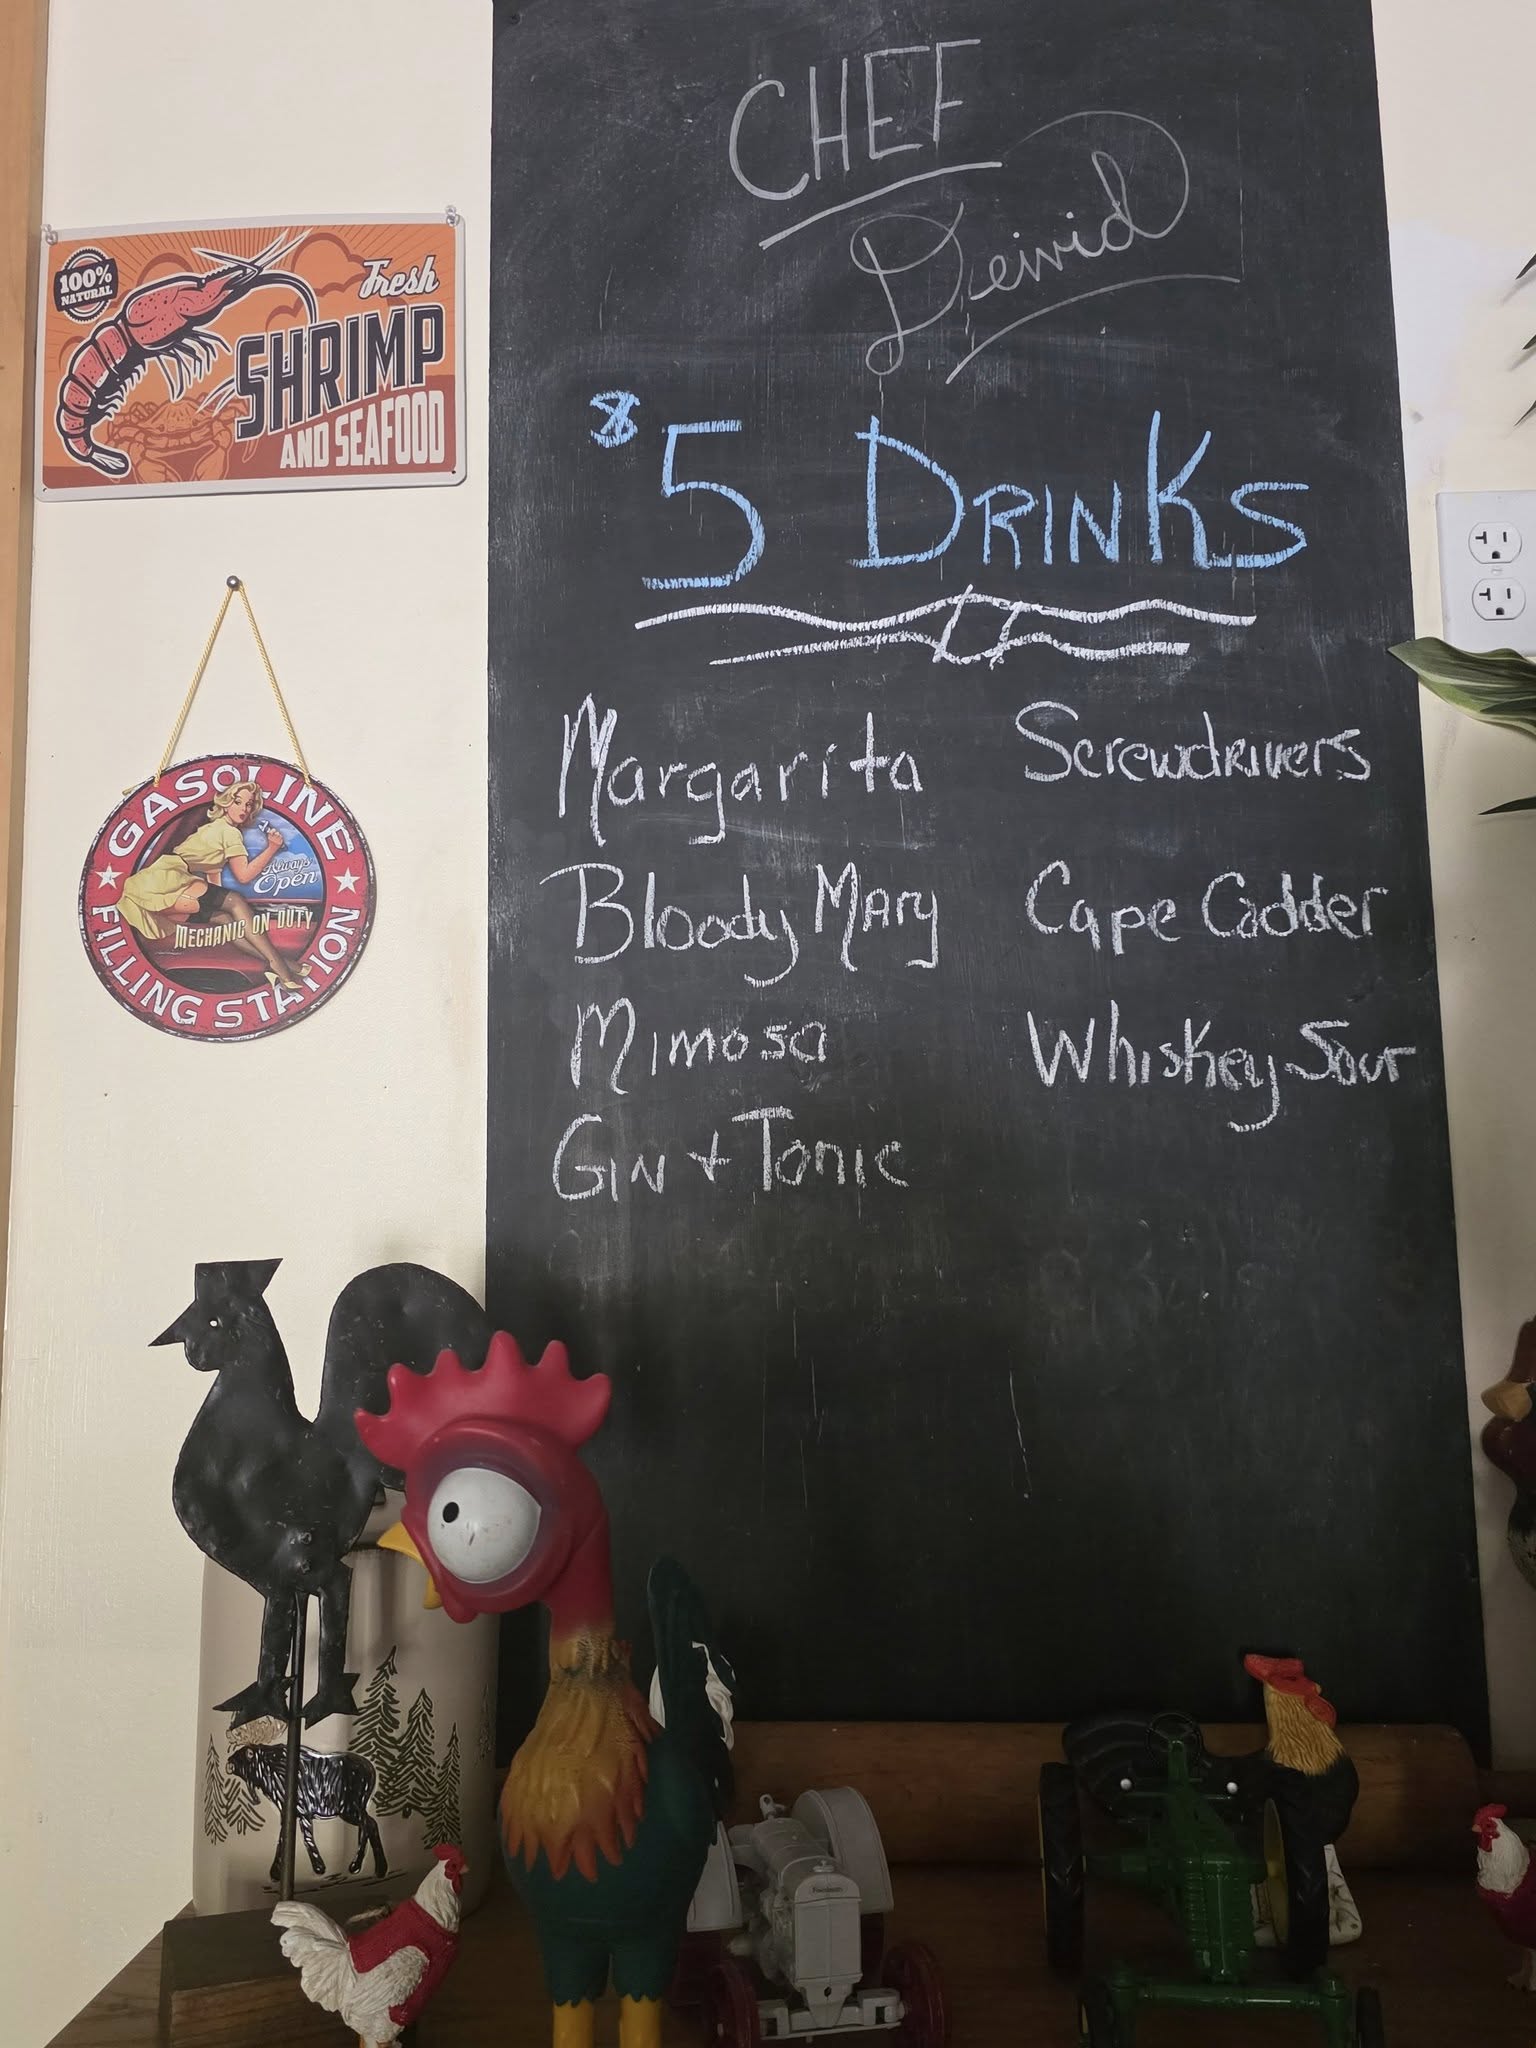 CHEF
Deivid
$5 DRINKS
Margarita
Bloody Mary
Mimosa
Gin + Tonic
Screwdrivers
Cape Cadder
Whiskey Sour
100%
NATURAL
Fresh
SHRIMP
AND SEAFOOD
GASOLINE
Always
Open
MECHANIC ON DUTY
FILLING STATION